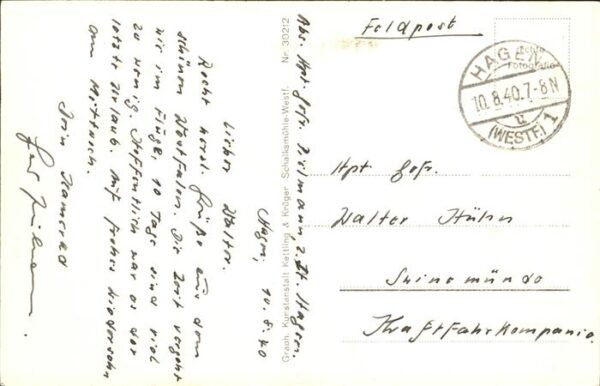 Hagen, 10.8.40
Lieber Walter.
Recht herzl. Grüße aus dem
schönen Westfalen. Die Zeit vergeht
wir im Fluge, 10 Tage sind viel
zu wenig. Hoffentlich war es der
letzte Urlaub. Auf frohes Wiedersehn
am Mittwoch.
Dein Kamerad
Abs. Hpt. Gefr. z. Zt. Hagen.
Graph. Kunstanstalt Kettling & Krüger Schalksmühle-Westf. Nr. 30212
Feldpost
Echte
Fotografie
HAGEN
10.8.40.7-8N
u
(WESTF) 1
Hpt Gefr.
Walter Hühn
Swinemünde
Kraftfahrkompanie.